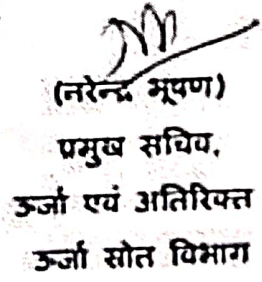 (नरेन्द्र भूषण)
प्रमुख सचिव,
ऊर्जा एवं अतिरिक्त
ऊर्जा स्रोत विभाग